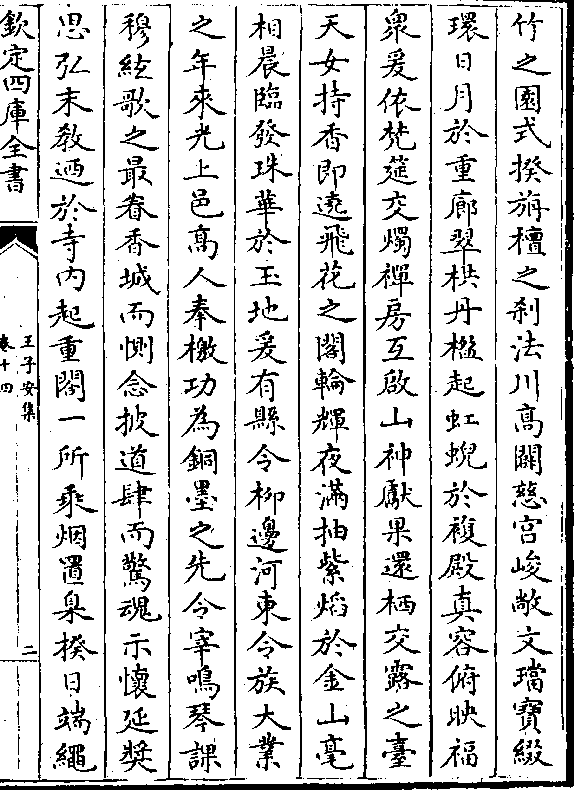 竹之園式揆旃檀之剎法川髙闢慈宫峻敞文璫寳綴
環日月於重廊翠栱丹楹起虹蜺於複殿真容俯映福
衆爰依梵筵交燭禪房互啟山神獻果還栖交露之臺
天女持香即遶飛花之閣輪輝夜滿抽紫焰於金山毫
相晨臨發珠華於玉地爰有縣令柳邊河東令族大業
之年來光上邑髙人奉檄功為銅墨之先令宰鳴琴課
穆絃歌之最眷香城而惻念披道肆而驚魂示懷延奬
思弘末教迺於寺内起重閣一所乘烟置臬揆日端繩
欽定四庫全書
王子安集
卷十四
二